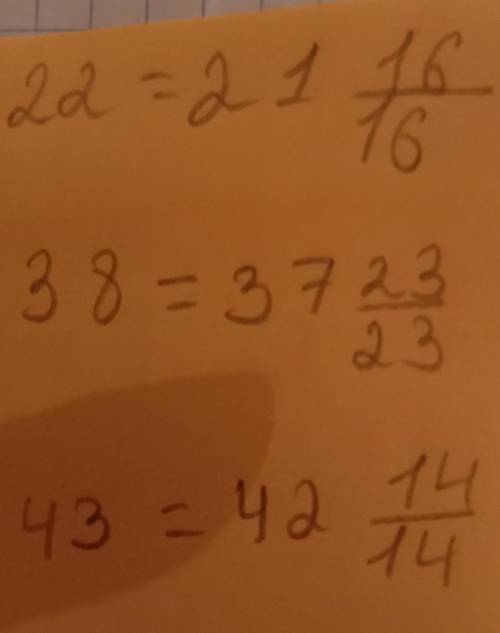 22 = 21 16/16
38 = 37 23/23
43 = 42 14/14